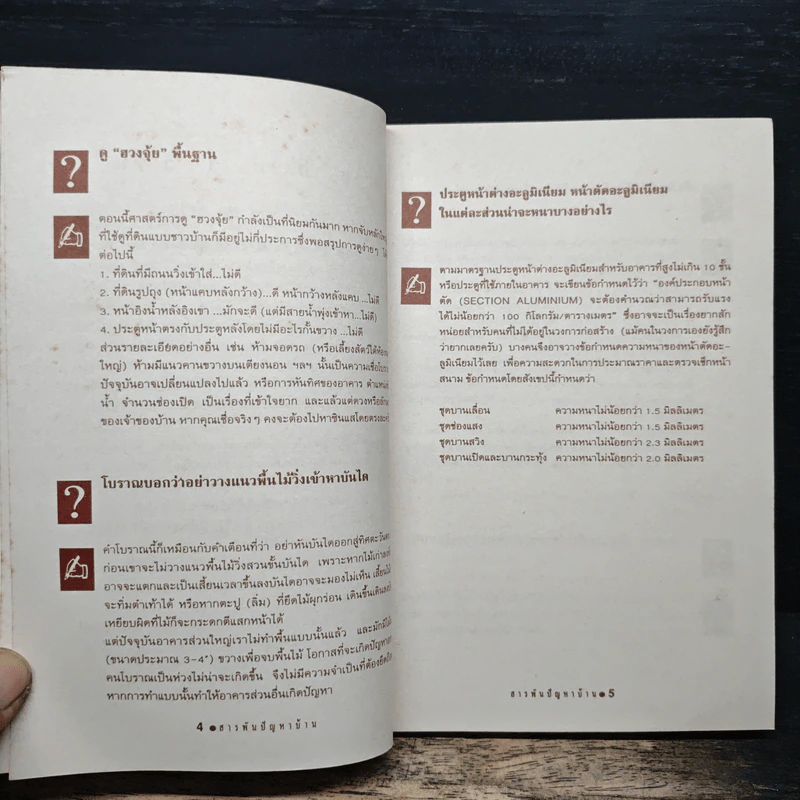 ?
ดู “ฮวงจุ้ย” พื้นฐาน
ตอนนี้ศาสตร์การดู “ฮวงจุ้ย” กำลังเป็นที่นิยมกันมาก หากจับหลักใหญ่
ที่ใช้ดูที่ดินแบบชาวบ้านก็มีอยู่ไม่กี่ประการซึ่งพอสรุปการดูง่ายๆ
ต่อไปนี้
1. ที่ดินที่มีถนนวิ่งเข้าใส่...ไม่ดี
2. ที่ดินรูปถุง (หน้าแคบหลังกว้าง)...ดี หน้ากว้างหลังแคบ ...ไม่ดี
3. หน้าอิงน้ำหลังอิงเขา ...มักจะดี (แต่มีสายน้ำพุ่งเข้าหา...ไม่ดี)
4. ประตูหน้าตรงกับประตูหลังโดยไม่มีอะไรกั้นขวาง ...ไม่ดี
ส่วนรายละเอียดอย่างอื่น เช่น ห้ามจอดรถ (หรือเลี้ยงสัตว์ใต้ห้อง
ใหญ่) ห้ามมีแนวคานขวางบนเตียงนอน ฯลฯ นั้นเป็นความเชื่อ
ปัจจุบันอาจเปลี่ยนแปลงไปแล้ว หรือการหันทิศของอาคาร ตำแหน่ง
น้ำ จำนวนช่องเปิด เป็นเรื่องที่เข้าใจยาก และแล้วแต่ดวงหรือลักษ
ของเจ้าของบ้าน หากคุณเชื่อจริงๆ คงจะต้องไปหาซินแสโดยตรง
?
โบราณบอกว่าอย่าวางแนวพื้นไม้วิ่งเข้าหาบันได
คำโบราณนี้ก็เหมือนกับคำเตือนที่ว่า อย่าหันบันไดออกสู่ทิศตะวันตก
ก่อนเขาจะไม่วางแนวพื้นไม้วิ่งสวนขั้นบันได เพราะหากไม้เก่าลง
อาจจะแตกและเป็นเสี้ยนเวลาขึ้นลงบันไดอาจจะมองไม่เห็น เสี้ยนไม้
จะทิ่มตำเท้าได้ หรือหากตะปู (ลิ่ม) ที่ยึดไม้ผุกร่อน เดินขึ้นเดินลง
เหยียบผิดที่ไม้ก็จะกระดกตีแสกหน้าได้
แต่ปัจจุบันอาคารส่วนใหญ่เราไม่ทำพื้นแบบนั้นแล้ว และมักมีไม้
(ขนาดประมาณ 3-4") ขวางเพื่อจบพื้นไม้ โอกาสที่จะเกิดปัญหา
คนโบราณเป็นห่วงไม่น่าจะเกิดขึ้น จึงไม่มีความจำเป็นที่ต้องยึดถือ
หากการทำแบบนั้นทำให้อาคารส่วนอื่นเกิดปัญหา
4 ●สารพันปัญหาบ้าน
?
ประตูหน้าต่างอะลูมิเนียม หน้าตัดอะลูมิเนียม
ในแต่ละส่วนน่าจะหนาบางอย่างไร
ตามมาตรฐานประตูหน้าต่างอะลูมิเนียมสำหรับอาคารที่สูงไม่เกิน 10 ชั้น
หรือประตูที่ใช้ภายในอาคาร จะเขียนข้อกำหนดไว้ว่า "องค์ประกอบหน้า
ตัด (SECTION ALUMINIUM) จะต้องคำนวณว่าสามารถรับแรง
ได้ไม่น้อยกว่า 100 กิโลกรัม/ตารางเมตร) ซึ่งอาจจะเป็นเรื่องยากสัก
หน่อยสำหรับคนที่ไม่ได้อยู่ในวงการก่อสร้าง (แม้คนในวงการเองยังรู้สึก
ว่ายากเลยครับ) บางคนจึงอาจวางข้อกำหนดความหนาของหน้าตัดอะ-
ลูมิเนียมไว้เลย เพื่อความสะดวกในการประมาณราคาและตรวจเช็กหน้า
สนาม ข้อกำหนดโดยสังเขปนี้กำหนดว่า
ชุดบานเลื่อน ความหนาไม่น้อยกว่า 1.5 มิลลิเมตร
ชุดช่องแสง ความหนาไม่น้อยกว่า 1.5 มิลลิเมตร
ชุดบานสวิง ความหนาไม่น้อยกว่า 2.3 มิลลิเมตร
ชุดบานเปิดและบานกระทุ้ง ความหนาไม่น้อยกว่า 2.0 มิลลิเมตร
สารพันปัญหาบ้าน●5